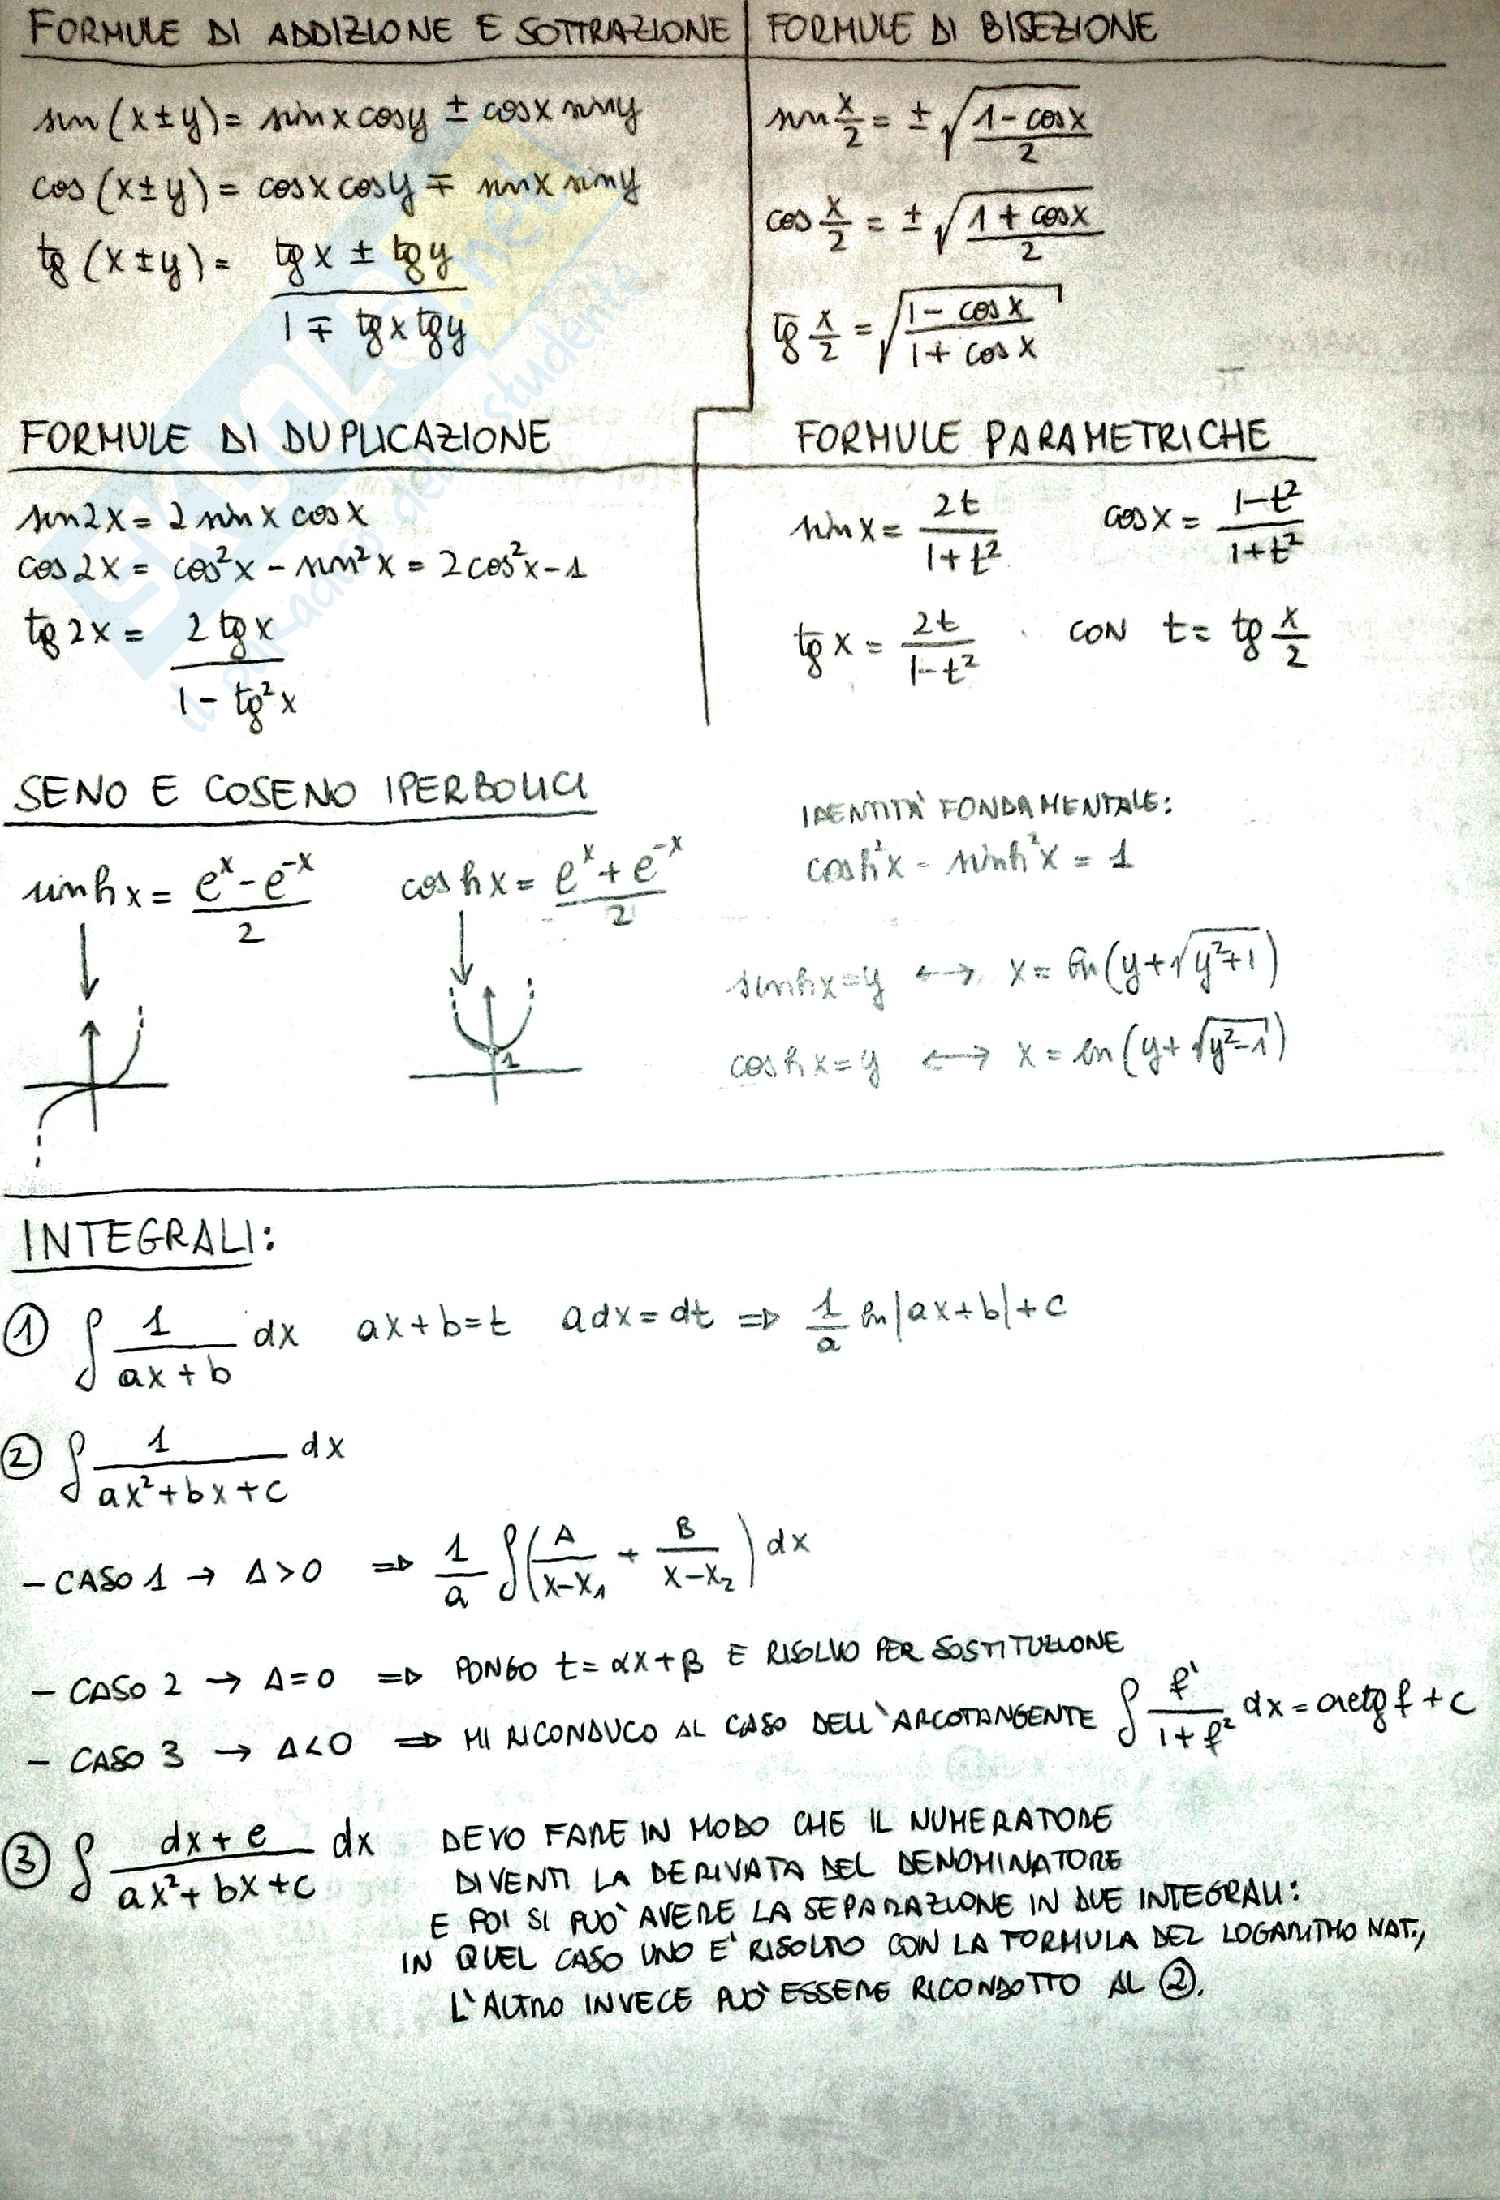 FORMULE DI ADDIZIONE E SOTTRAZIONE
sin (x±y) = sinx cosy ± cosx siny
cos (x±y) = cosx cosy ∓ sinx siny
tg (x±y) = (tgx ± tgy) / (1 ∓ tgx tgy)
FORMULE DI BISEZIONE
sin x/2 = ± √((1-cosx)/2)
cos x/2 = ± √((1+cosx)/2)
tg x/2 = √((1-cosx)/(1+cosx))
FORMULE DI DUPLICAZIONE
sin2x = 2 sinx cosx
cos2x = cos²x - sin²x = 2cos²x-1
tg2x = 2tgx / (1-tg²x)
FORMULE PARAMETRICHE
sinx = 2t/(1+t²) cosx = (1-t²)/(1+t²)
tgx = 2t/(1-t²) CON t = tg x/2
SENO E COSENO IPERBOLICI
sinhx = (e^x - e^-x)/2 coshx = (e^x + e^-x)/2
1
IDENTITÀ FONDAMENTALE:
cosh²x - sinh²x = 1
sinhx=y ↔ x = ln(y+√(y²+1))
coshx=y ↔ x = ln(y+√(y²-1))
INTEGRALI:
① ∫ 1/(ax+b) dx ax+b=t adx=dt ⇒ 1/a ln|ax+b|+c
② ∫ 1/(ax²+bx+c) dx
- CASO 1 → Δ>0 ⇒ 1/a ∫(A/(x-x₁) + B/(x-x₂)) dx
- CASO 2 → Δ=0 ⇒ PONGO t=αx+β E RISOLVO PER SOSTITUZIONE
- CASO 3 → Δ<0 ⇒ MI RICONDUCO AL CASO DELL'ARCOTANGENTE ∫ f'/(1+f²) dx = arctgf+c
③ ∫ (dx+e)/(ax²+bx+c) dx DEVO FARE IN MODO CHE IL NUMERATORE
DIVENTI LA DERIVATA DEL DENOMINATORE
E POI SI PUO' AVERE LA SEPARAZIONE IN DUE INTEGRALI:
IN QUEL CASO UNO E' RISOLTO CON LA FORMULA DEL LOGARITMO NAT.,
L'ALTRO INVECE PUO' ESSERE RICONDOTTO AL ②.
SKUOLA.net